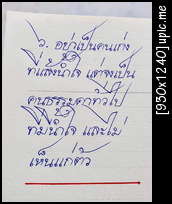 ๖. อย่าเป็นคนเก่ง
ที่แล้งน้ำใจ แต่จงเป็น
คนธรรมดาทั่วไป
ที่มีน้ำใจ และไม่
เห็นแก่ตัว
[930x1240] upic.me